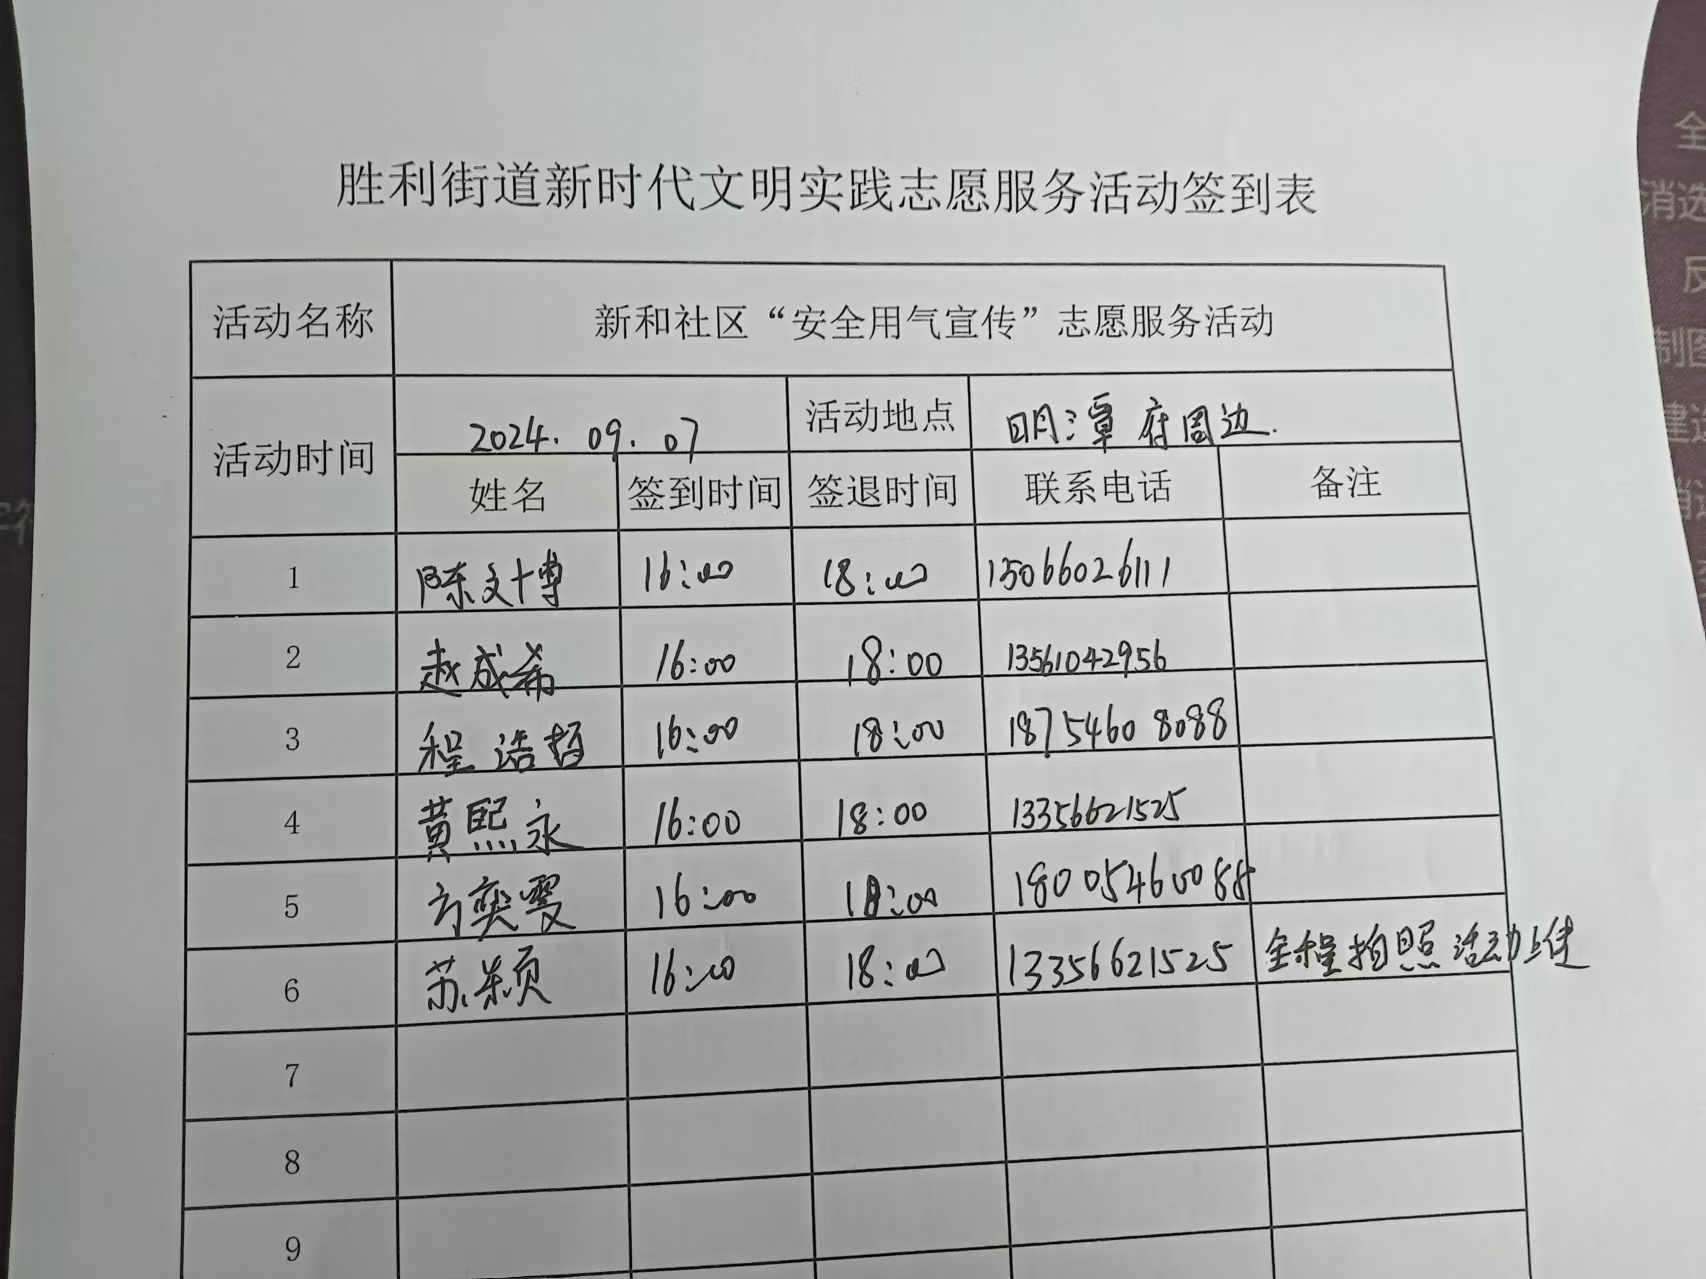 胜利街道新时代文明实践志愿服务活动签到表
活动名称 新和社区“安全用气宣传”志愿服务活动
活动时间 2024.09.07 活动地点 明潭府周边.
姓名 签到时间 签退时间 联系电话 备注
1 陈文博 16:00 18:00 15066026111
2 赵成希 16:00 18:00 13561042956
3 程浩哲 16:00 18:00 18754608088
4 黄熙永 16:00 18:00 13356621525
5 方奕雯 16:00 18:00 18005460088
6 苏颖 16:00 18:00 13356621525 全程拍照活动上传
7
8
9
全
消选
反
制图
建